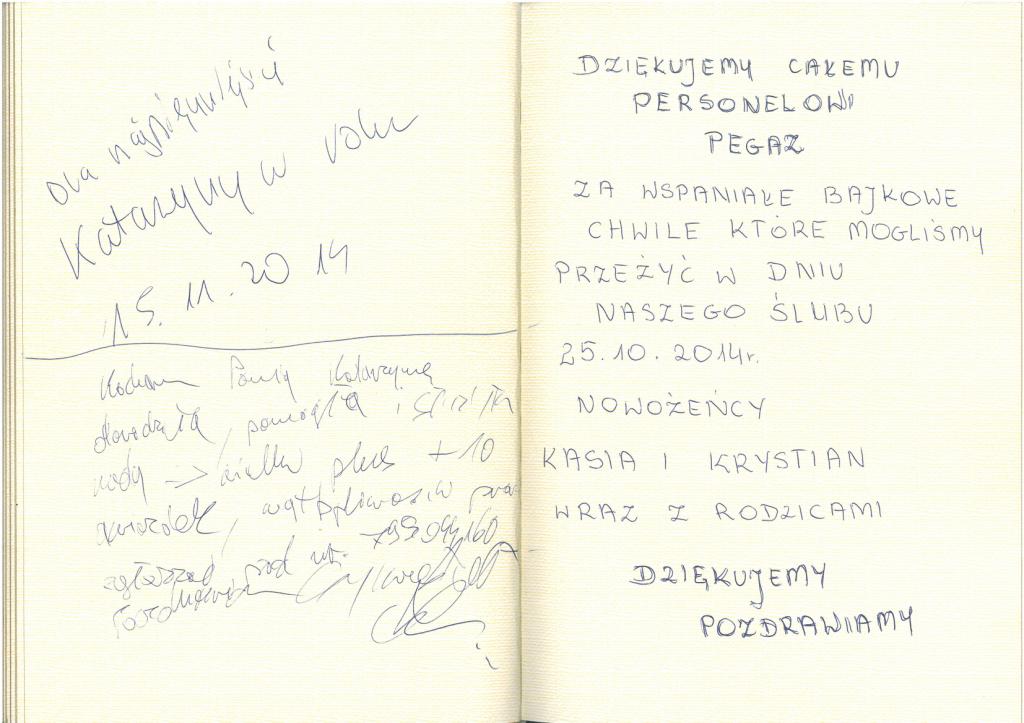 Dla najpiękniejszej
Katarzyny w roku
15.11.2014
Kocham Panią Katarzynę
doradziła, pomogła i
rady -> wielki plus + 10
gwiazdek, wątpliwości
zgłaszać pod nr. 799 044160
Pozdrawiam
DZIĘKUJEMY CAŁEMU
PERSONELOWI
PEGAZ
ZA WSPANIAŁE BAJKOWE
CHWILE KTÓRE MOGLIŚMY
PRZEŻYĆ W DNIU
NASZEGO ŚLUBU
25.10.2014r.
NOWOŻEŃCY
KASIA I KRYSTIAN
WRAZ Z RODZICAMI
DZIĘKUJEMY
POZDRAWIAMY